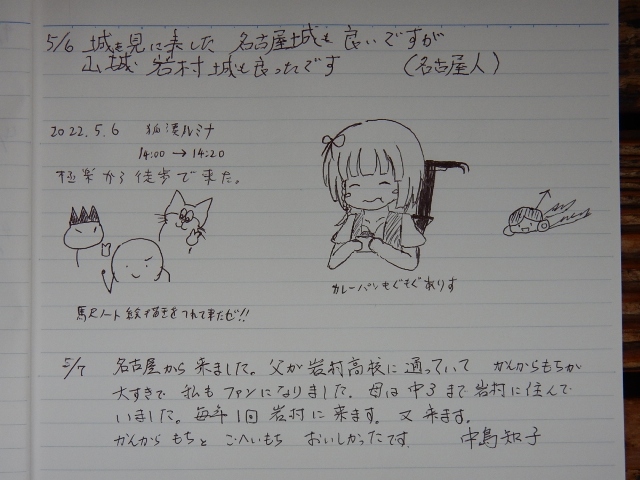 5/6 城を見に来した 名古屋城も良いですが
山城 岩村城も良ったです (名古屋人)
2022.5.6 狐湊ルミナ
14:00 → 14:20
極楽から徒歩で来た。
カレーパンもぐもぐありす
駅ノート絵描きをつれて来たぜ!!
5/7 名古屋から来ました。父が岩村高校に通っていて かんからもちが
大すきで 私も ファンになりました。母は中3まで岩村に住んで
いました。毎年1回 岩村に来ます。又来ます。
かんから もちと ごへいもち おいしかったです 中島知子